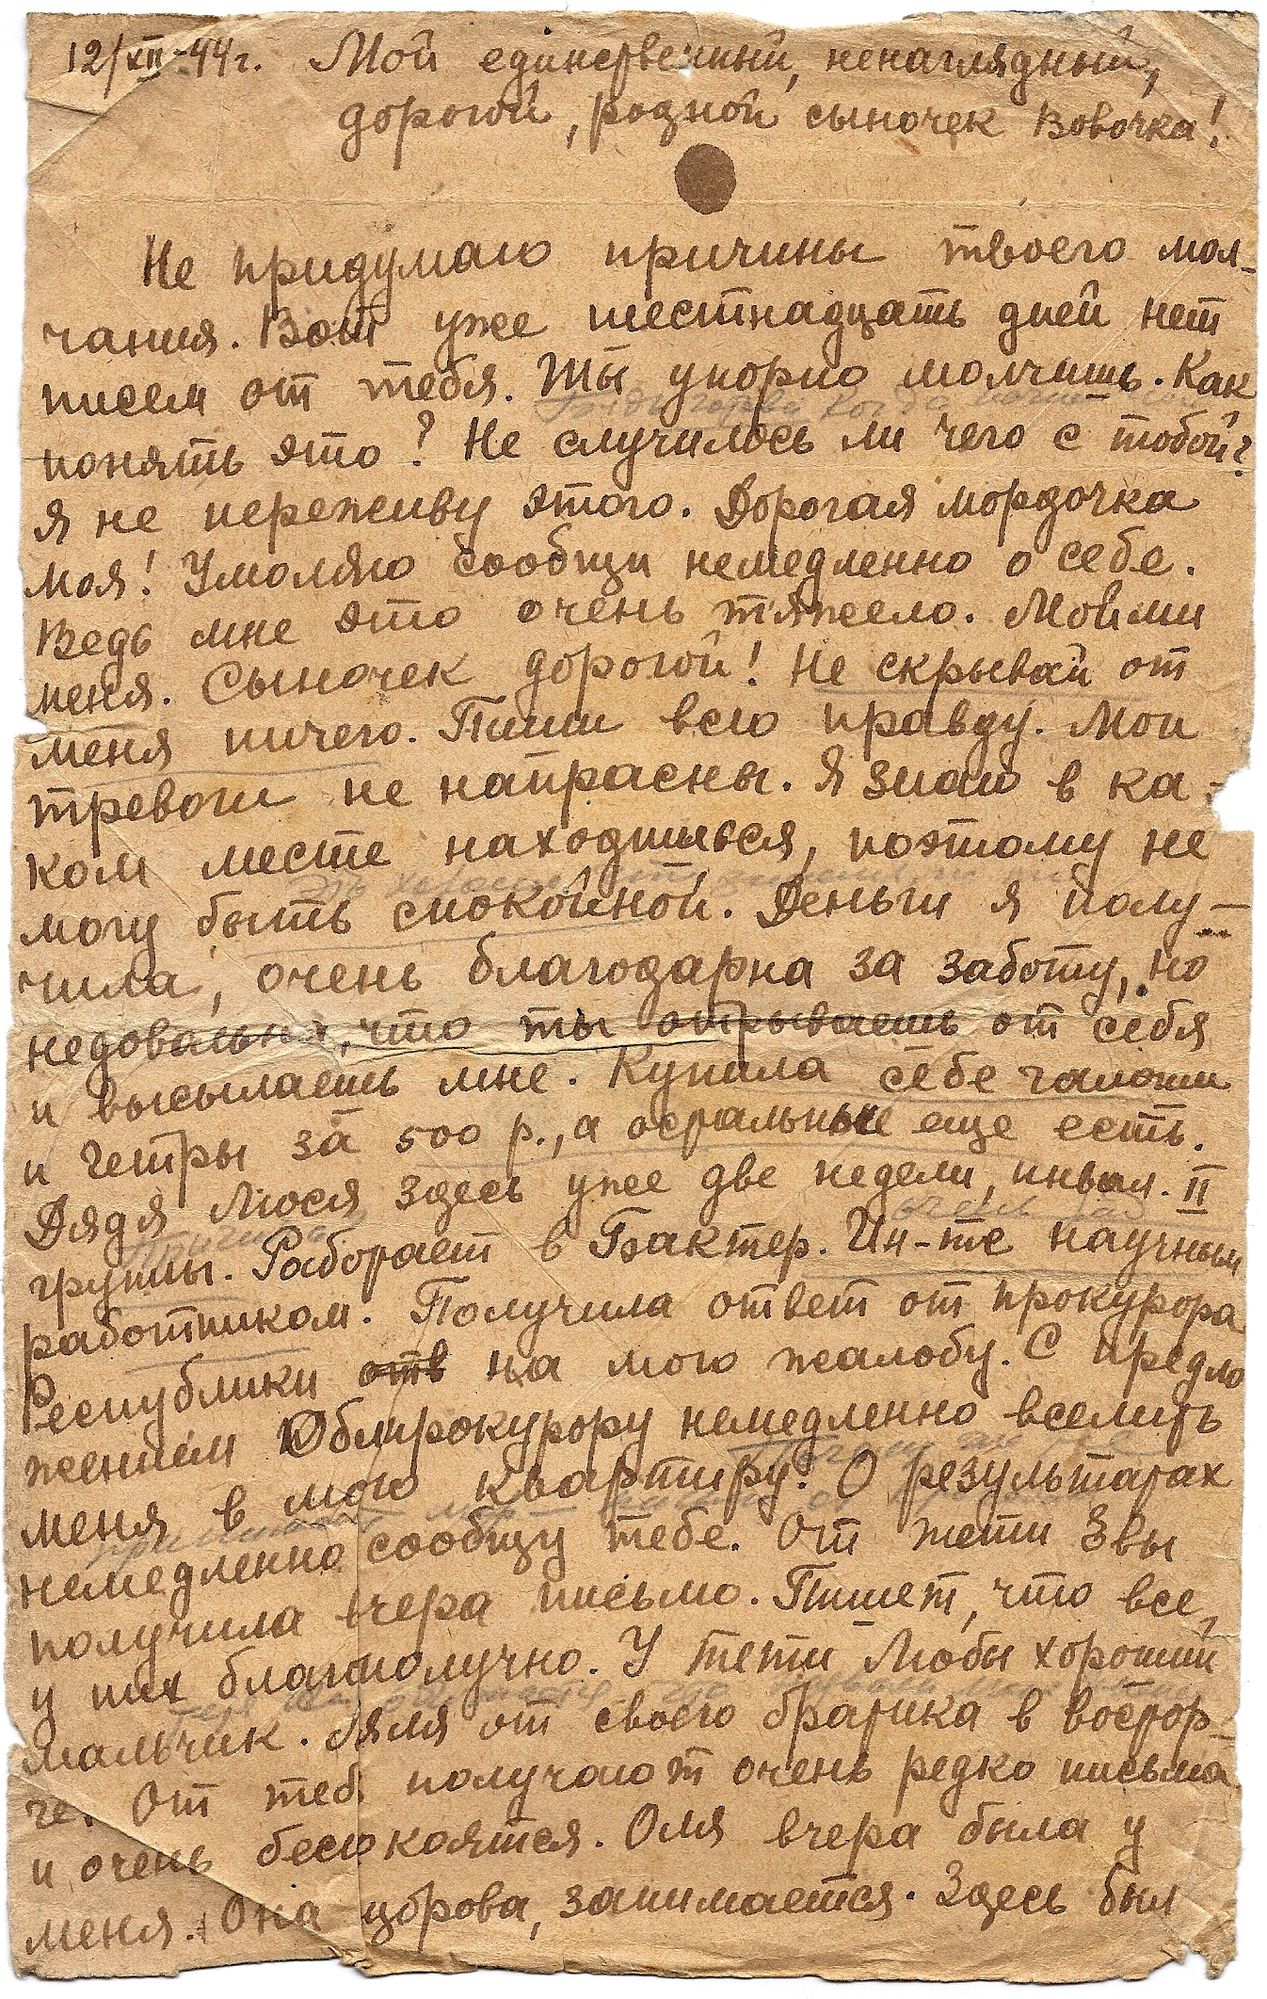 12/XII-44г. Мой единственный, ненаглядный,
дорогой, родной сыночек Вовочка!
Не придумаю причины твоего мол-
чания. Вот уже шестнадцать дней нет
писем от тебя. Ты упорно молчишь. Как
понять это? Не случилось ли чего с тобой?
Я не переживу этого. Дорогая мордочка
моя! Умоляю сообщи немедленно о себе.
Ведь мне это очень тяжело. Пойми
меня. Сыночек дорогой! Не скрывай от
меня ничего. Пиши всю правду. Мои
тревоги не напрасны. Я знаю в ка-
ком месте находишься, поэтому не
могу быть спокойной. Деньги я полу-
чила, очень благодарна за заботу, но
недовольна, что ты отрываешь от себя
и высылаешь мне. Купила себе галоши
и гетры за 500 р., а остальные еще есть.
Дядя Люся здесь уже две недели, инвал. II
группы. Работает в Бактер. Ин-те научным
работником. Получила ответ от прокурора
Республики отв на мою жалобу. С предло
жением Облпрокурору немедленно вселить
меня в мою квартиру. О результатах
немедленно сообщу тебе. От тети Эвы
получила вчера письмо. Пишет, что все
у них благополучно. У тети Любы хороший
мальчик. Ляля от своего братика в востор-
ге. От тебя получают очень редко письма
и очень беспокоятся. Оля вчера была у
меня. Она здорова, занимается. Здесь был